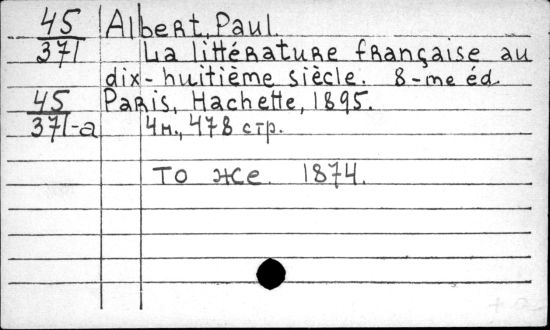 45 Albert, Paul.
371 La littérature française au
dix-huitième siècle. 8-me éd.
45 Paris, Hachette, 1895.
371-a 4н., 478 стр.
То же. 1874.